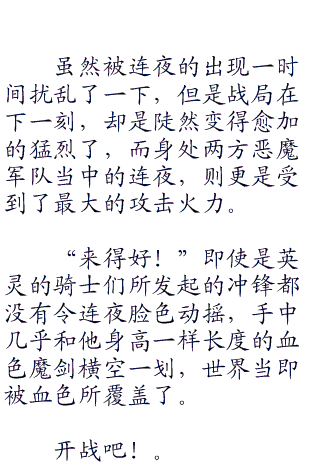 虽然被连夜的出现一时
间扰乱了一下，但是战局在
下一刻，却是陡然变得愈加
的猛烈了，而身处两方恶魔
军队当中的连夜，则更是受
到了最大的攻击火力。
“来得好！”即使是英
灵的骑士们所发起的冲锋都
没有令连夜脸色动摇，手中
几乎和他身高一样长度的血
色魔剑横空一划，世界当即
被血色所覆盖了。
开战吧！。